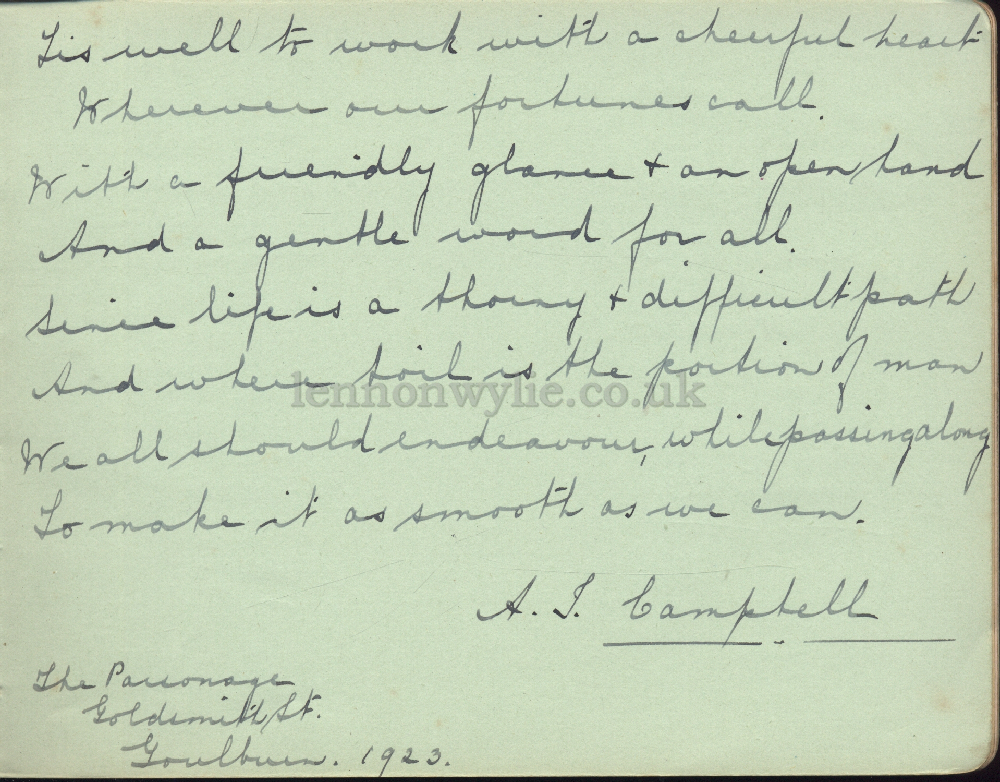 Tis well to work with a cheerful heart
Wherever our fortunes call.
With a friendly glance & an open hand
And a gentle word for all.
Since life is a thorny & difficult path
And where toil is the portion of man
We all should endeavour, while passing along
To make it as smooth as we can.
A. T. Campbell
The Parsonage
Goldsmith St.
Goulburn. 1923.
lennonwylie.co.uk